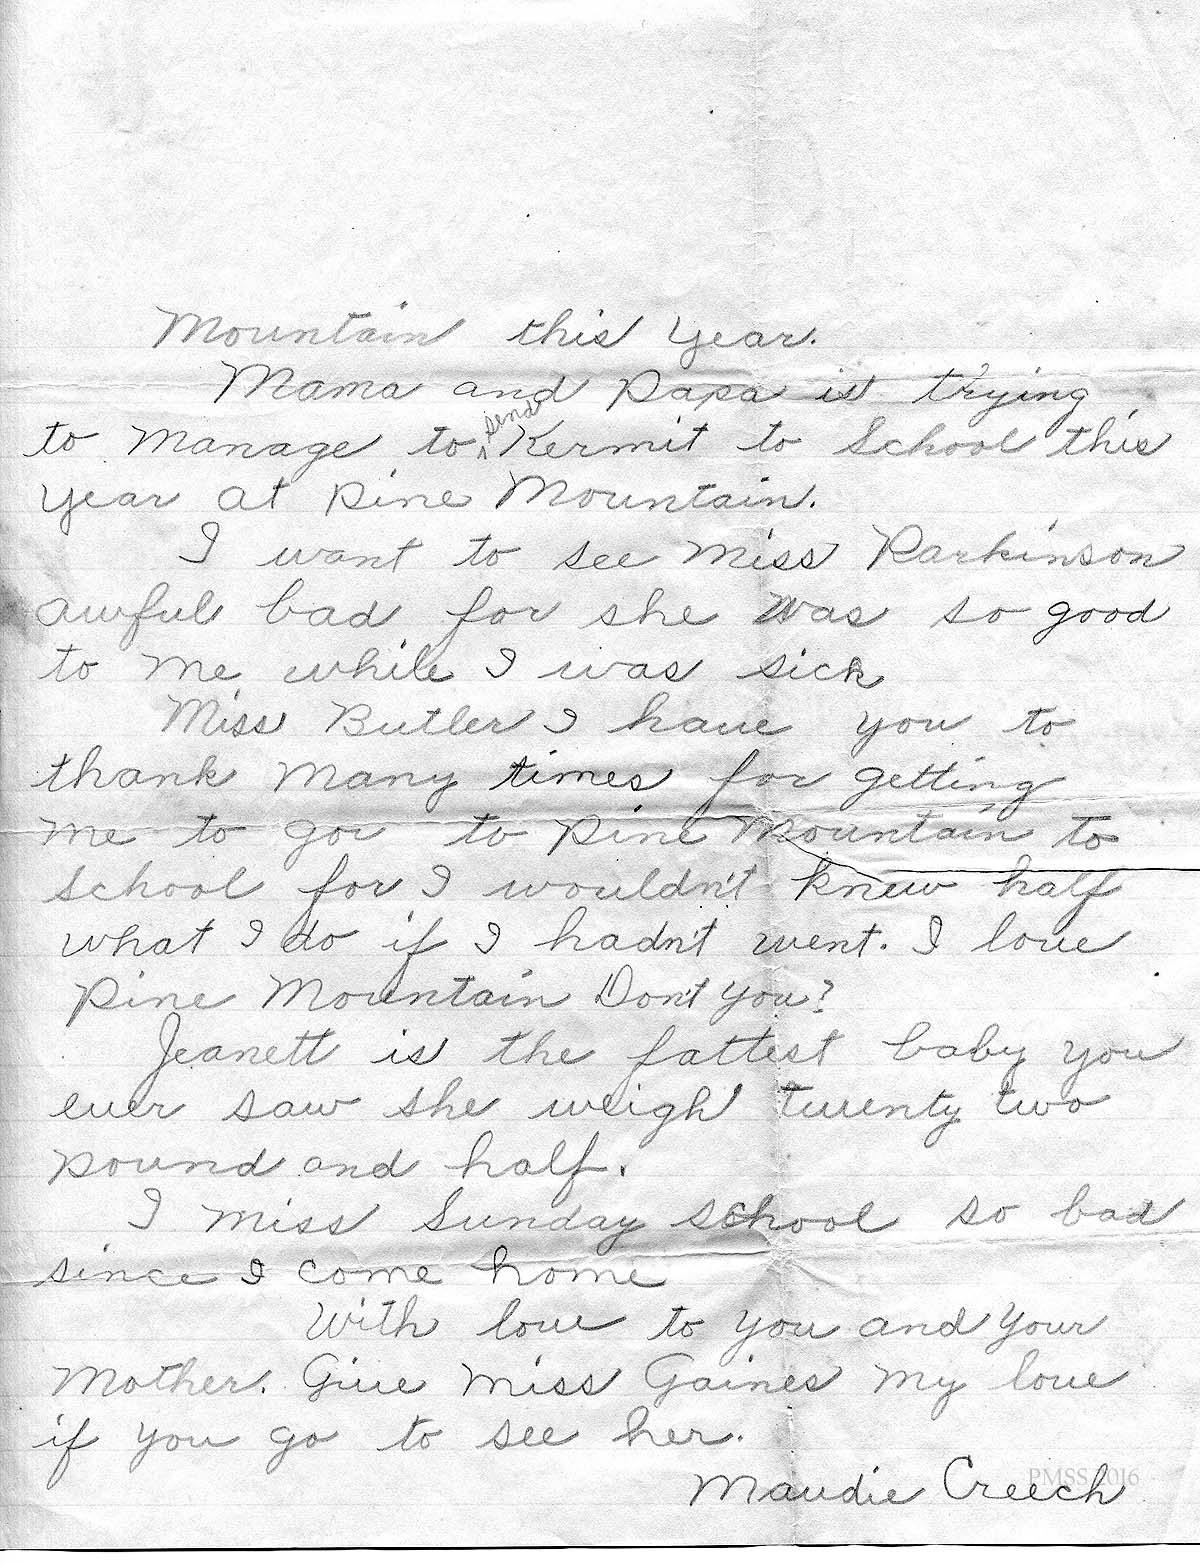 Mountain this year.
Mama and Papa is trying
to manage to send Kermit to School this
year at Pine Mountain.
I want to see Miss Parkinson
awful bad for she was so good
to me while I was sick
Miss Butler I have you to
thank many times for getting
me to goi to Pine Mountain to
school for I wouldn't knew half
what I do if I hadn't went. I love
Pine Mountain Don't you?
Jeanett is the fattest baby you
ever saw she weigh twenty two
pound and half.
I miss Sunday school so bad
since I come home
With love to you and your
Mother. Give Miss Gaines my love
if you go to see her.
Maudie Creech
PMSS 2016